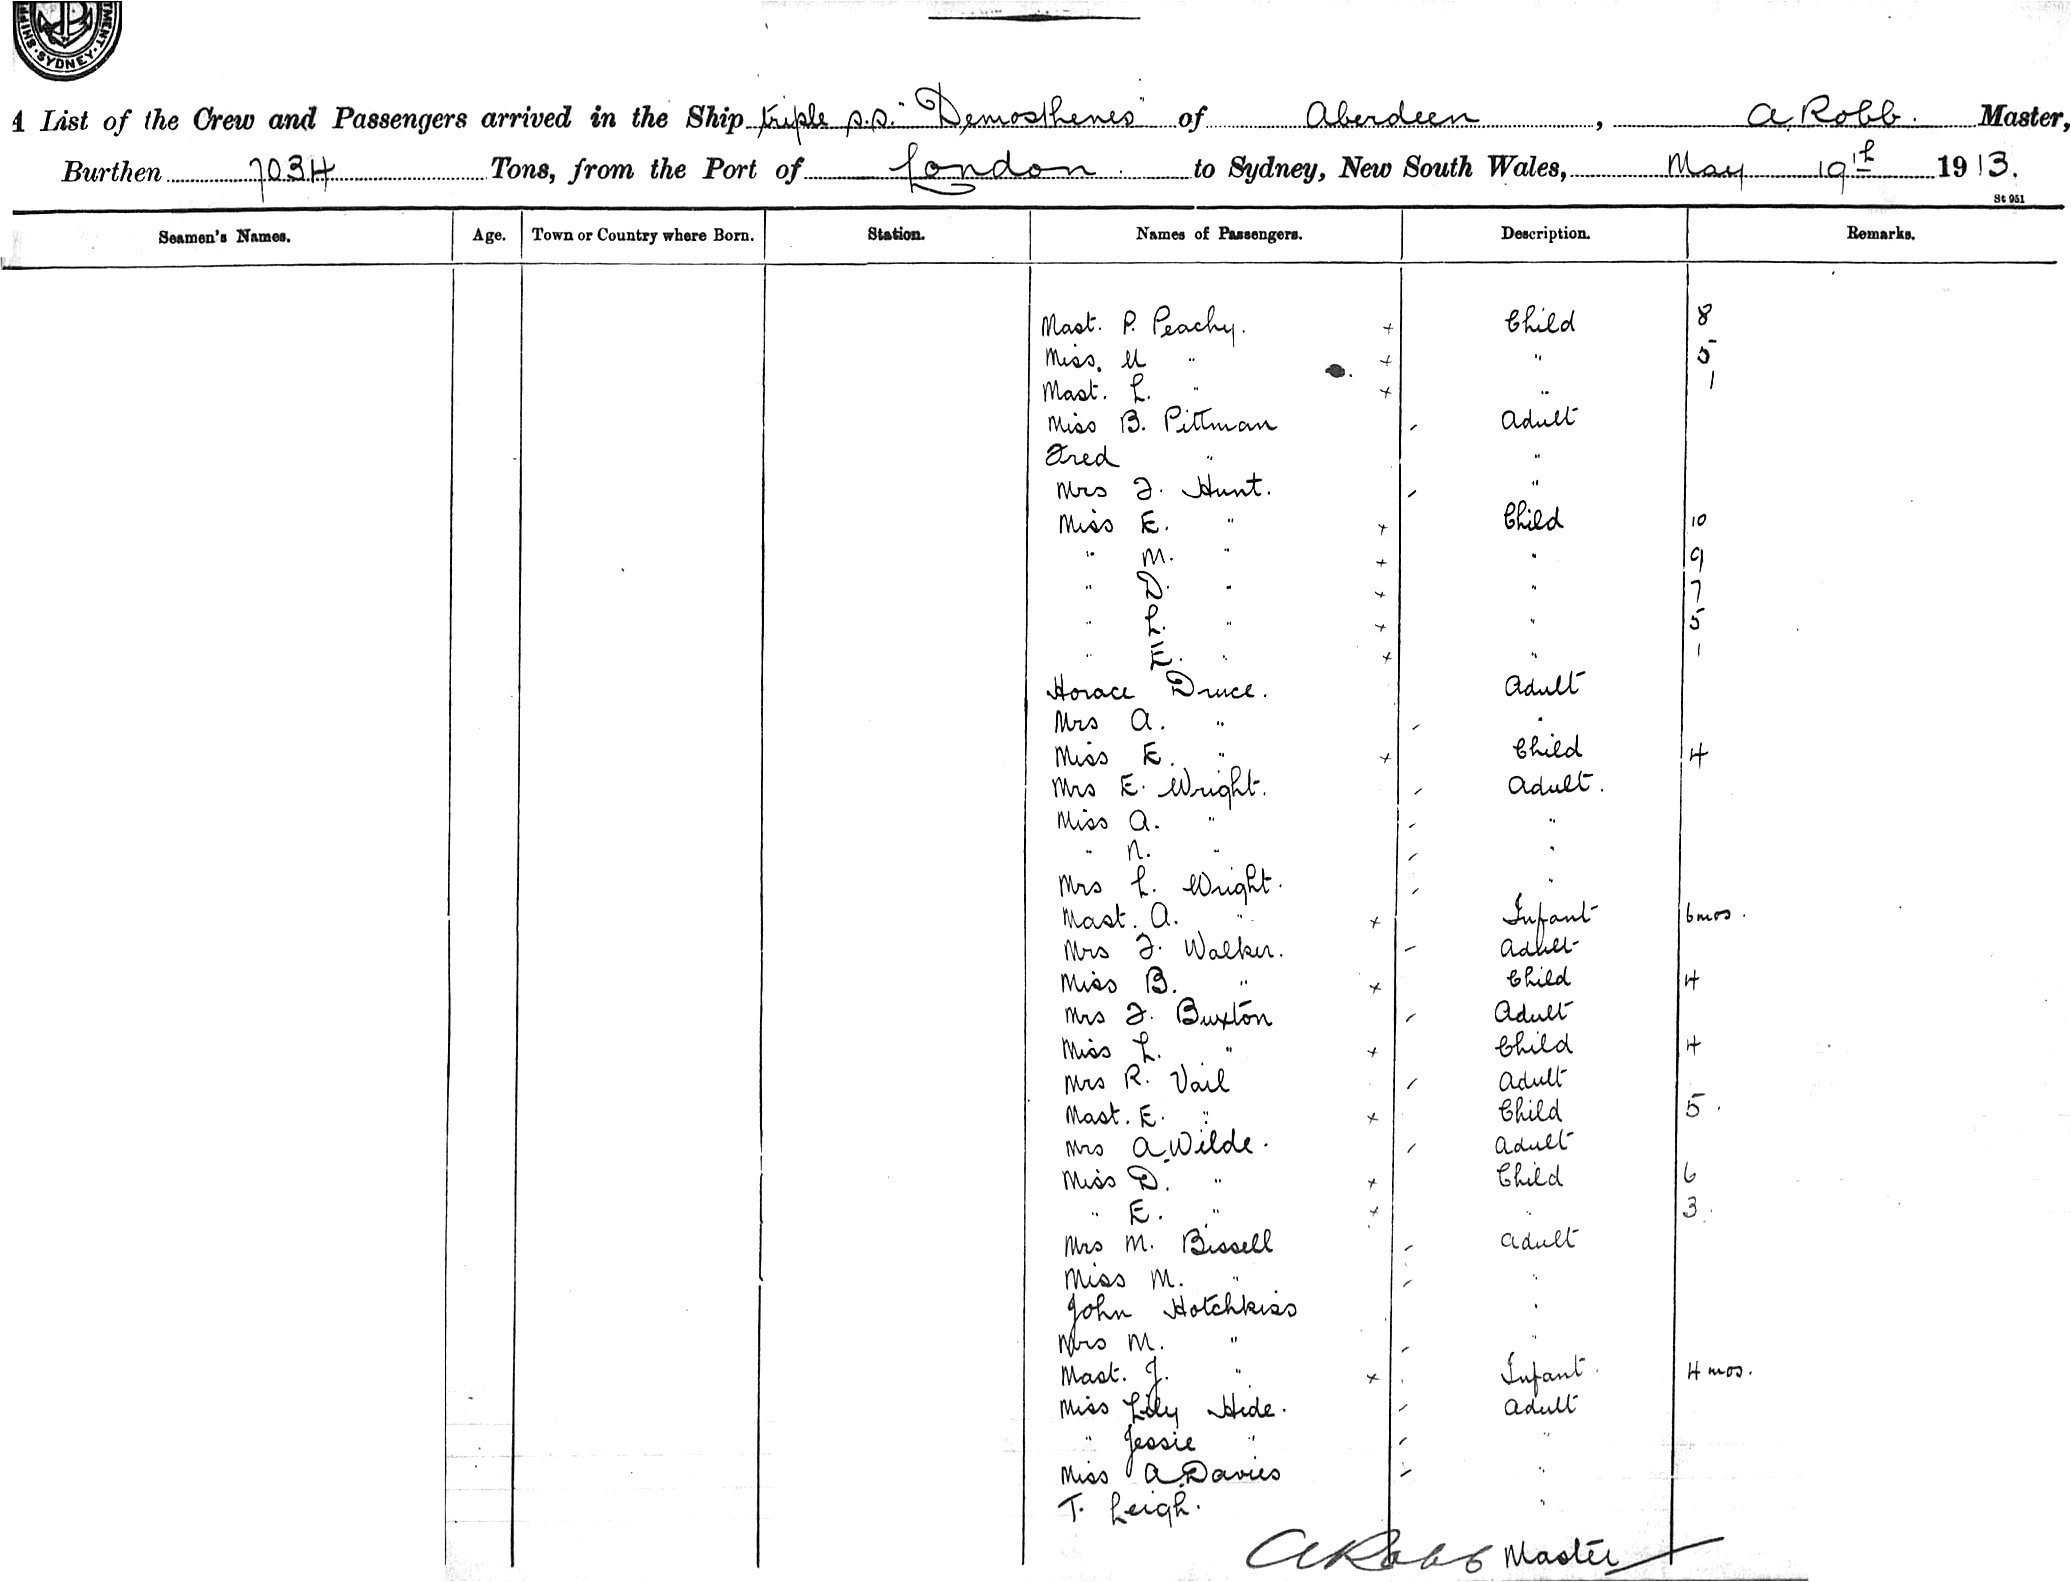 SHIP MENT · SYDNEY ·
A List of the Crew and Passengers arrived in the Ship triple s.s. "Demosthenes" of Aberdeen, A. Robb. Master,
Burthen 7034 Tons, from the Port of London to Sydney, New South Wales, May 19th 1913.
St 951
Seamen's Names. Age. Town or Country where Born. Station. Names of Passengers. Description. Remarks.
Mast. P. Peachy. + Child 8
Miss. U " + " 5
Mast. L. " + " 1
Miss B. Pittman Adult
Fred " "
Mrs F. Hunt. "
Miss E. " + Child 10
" M. " + " 9
" D. " + " 7
" L. " + " 5
" E. " + " 1
Horace Druce. Adult
Mrs A. " "
Miss E. " + Child 4
Mrs E. Wright. Adult.
Miss A. " "
" N. " "
Mrs L. Wright. "
Mast. A. " + Infant 6 mos.
Mrs F. Walker. Adult
Miss B. " + Child 4
Mrs F. Buxton Adult
Miss L. " + Child 4
Mrs R. Vail Adult
Mast. E. " + Child 5.
Mrs A. Wilde. Adult
Miss D. " + Child 6
" E. " + " 3.
Mrs M. Bissell Adult
Miss M. " "
John Hotchkiss "
Mrs M. " "
Mast. J. " + Infant. 4 mos.
Miss Lily Hide. Adult
" Jessie " "
Miss A. Davies "
T. Leigh. "
A Robb Master